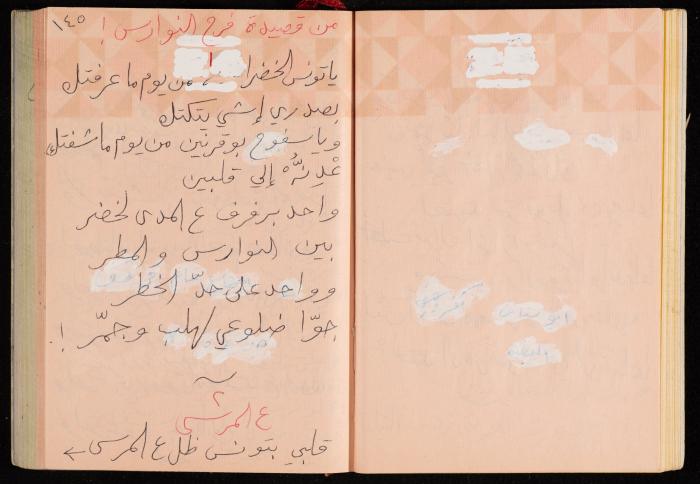 ١٤٥
من قصيدة فرح النوارس !
١
يا تونس الخضرا من يوم ما عرفتك
بصدري إشي يتكتك
ويا سفوح بوقرنين من يوم ما شفتك
إلي قلبين
واحد برفرف ع المدى لخضر
بين النوارس والمطر
وواحد على حدّ الخطر
جوّا ضلوعي لهلب وجمّر !
٢
ع المرسى
قلبي بتونس ظل ع المرسى ←
ابو